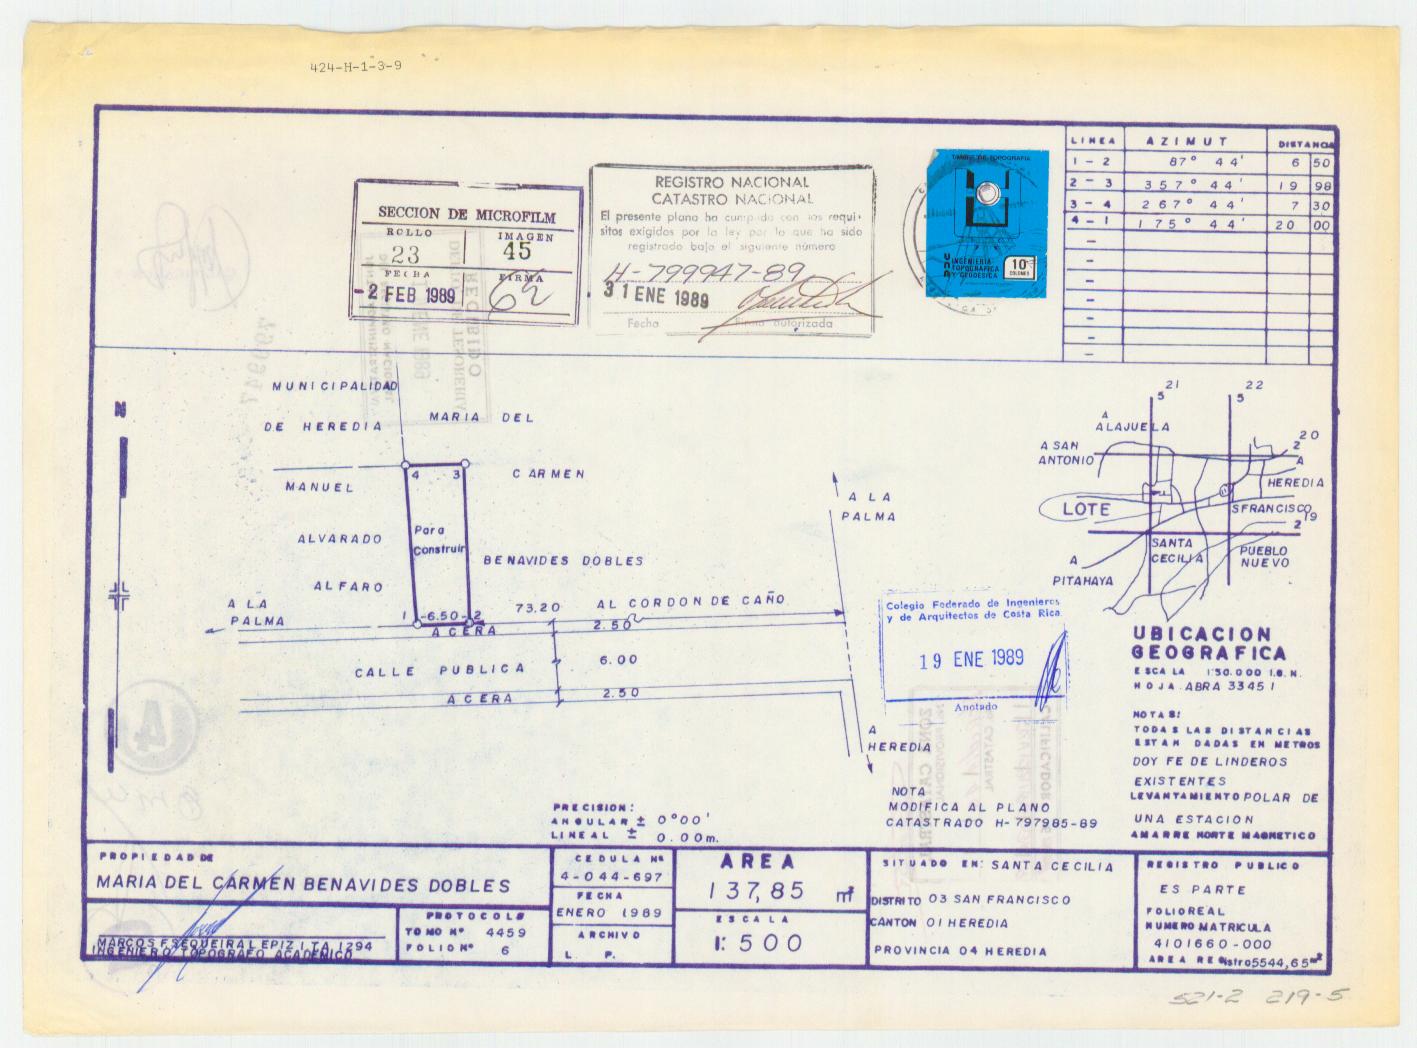 424-H-1-3-9
LINEA AZIMUT DISTANCIA
1-2 87° 44' 6 50
2-3 357° 44' 19 98
3-4 267° 44' 7 30
4-1 175° 44' 20 00
SECCION DE MICROFILM
ROLLO IMAGEN
23 45
FECHA FIRMA
-2 FEB 1989
REGISTRO NACIONAL
CATASTRO NACIONAL
El presente plano ha cumplido con los requi-
sitos exigidos por la ley por lo que ha sido
registrado bajo el siguiente número
H-799947-89
31 ENE 1989
Fecha Firma autorizada
TIMBRE DE TOPOGRAFIA
UNA
INGENIERIA
TOPOGRAFICA
Y GEODESICA
10
COLONES
MUNICIPALIDAD
DE HEREDIA
MARIA DEL
CARMEN
BENAVIDES DOBLES
MANUEL
ALVARADO
ALFARO
N
4 3
Para
Construir
1 -6.50- 2
A LA
PALMA
73.20 AL CORDON DE CAÑO
ACERA 2.50
CALLE PUBLICA 6.00
ACERA 2.50
A LA
PALMA
A
HEREDIA
Colegio Federado de Ingenieros
y de Arquitectos de Costa Rica
19 ENE 1989
Anotado
21 22
5 5
A
ALAJUELA
A SAN
ANTONIO
20
2
A
HEREDIA
LOTE
S FRANCISCO
19
2
SANTA
CECILIA
PUEBLO
NUEVO
A
PITAHAYA
UBICACION
GEOGRAFICA
ESCALA 1:50.000 I.G.N.
HOJA ABRA 3345 I
NOTAS:
TODAS LAS DISTANCIAS
ESTAN DADAS EN METROS
DOY FE DE LINDEROS
EXISTENTES
LEVANTAMIENTO POLAR DE
UNA ESTACION
AMARRE NORTE MAGNETICO
NOTA
MODIFICA AL PLANO
CATASTRADO H-797985-89
PRECISION:
ANGULAR ± 0°00'
LINEAL ± 0.00m.
PROPIEDAD DE
MARIA DEL CARMEN BENAVIDES DOBLES
MARCOS F SEQUEIRA LEPIZ I TA 1294
INGENIERO TOPOGRAFO ACADEMICO
PROTOCOLO
TOMO Nº 4459
FOLIO Nº 6
CEDULA Nº
4-044-697
FECHA
ENERO 1989
ARCHIVO
L. P.
AREA
137,85 m²
ESCALA
1:500
SITUADO EN: SANTA CECILIA
DISTRITO 03 SAN FRANCISCO
CANTON 01 HEREDIA
PROVINCIA 04 HEREDIA
REGISTRO PUBLICO
ES PARTE
FOLIO REAL
NUMERO MATRICULA
4101660-000
AREA REGistro 5544,65 m²
521-2 219-5